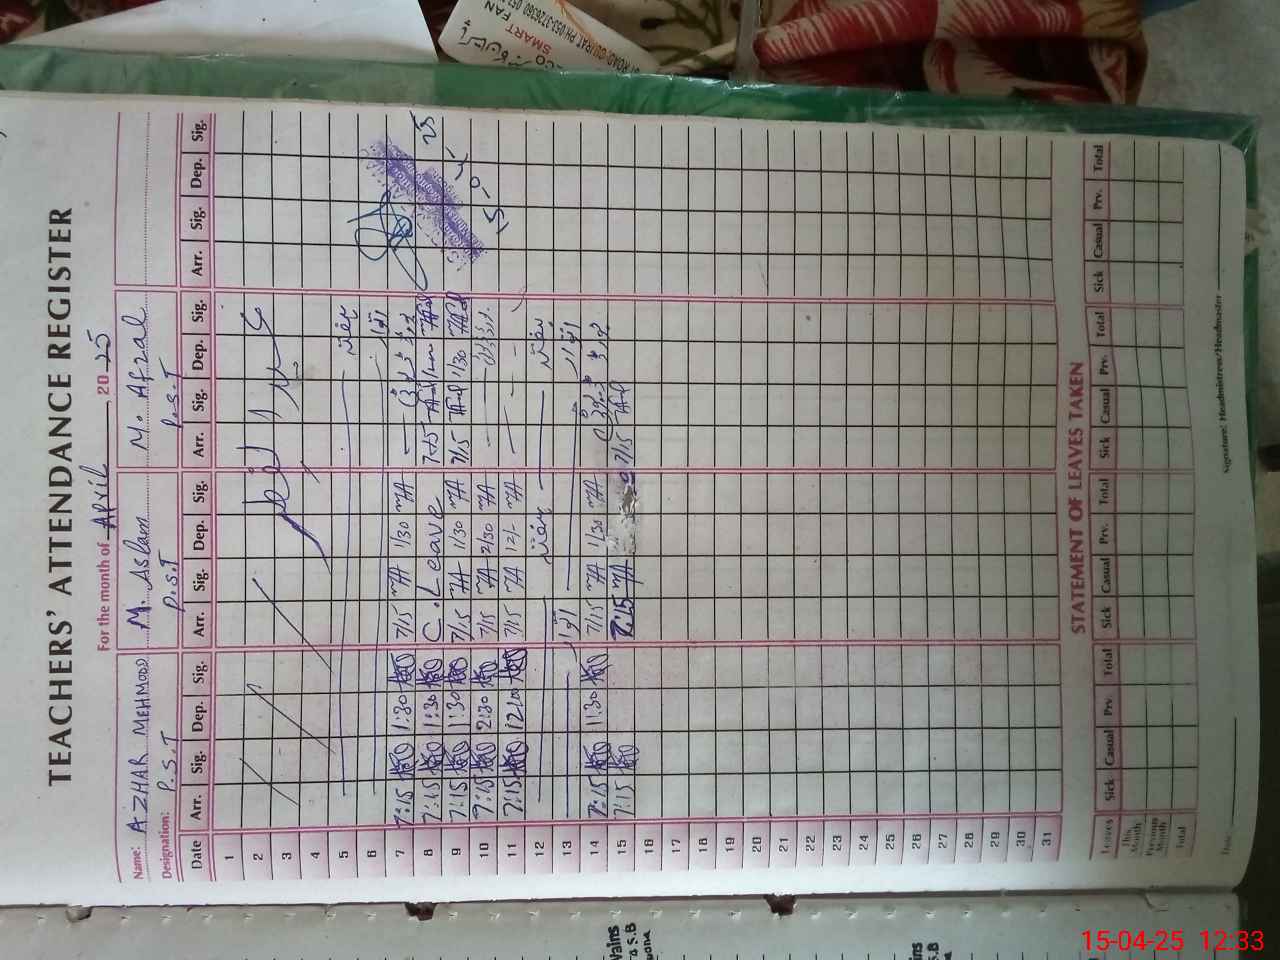 TEACHERS' ATTENDANCE REGISTER
For the month of April, 2025
Name: AZHAR MEHMOOD M. Aslam M. Afzal
Designation: P.S.T P.S.T P.S.T
Date Arr. Sig. Dep. Sig. Arr. Sig. Dep. Sig. Arr. Sig. Dep. Sig. Arr. Sig. Dep. Sig.
1
2
3
4
5 ہفتہ
6 اتوار
7 7:15 1:30 7/15 MA 1/30 MA
8 7:15 1:30 C. Leave 7:15
9 7:15 1:30 7/15 MA 1/30 MA 7/15 1/30
10 7:15 2:30 7/15 MA 2/30 MA
11 7:15 12:00 7/15 MA 12/- MA
12 ہفتہ ہفتہ
13 اتوار اتوار
14 7:15 1:30 7/15 MA 1/30 MA
15 7:15 7:15 MA 7/15
16
17
18
19
20
21
22
23
24
25
26
27
28
29
30
31
15-04-25
STATEMENT OF LEAVES TAKEN
Leaves Sick Casual Prv. Total Sick Casual Prv. Total Sick Casual Prv. Total Sick Casual Prv. Total
This Month
Previous Month
Total
Date
Signature: Headmistress/Headmaster
SMART
FAN
ROAD, GUJRAT PH:053-3726360
15-04-25 12:33